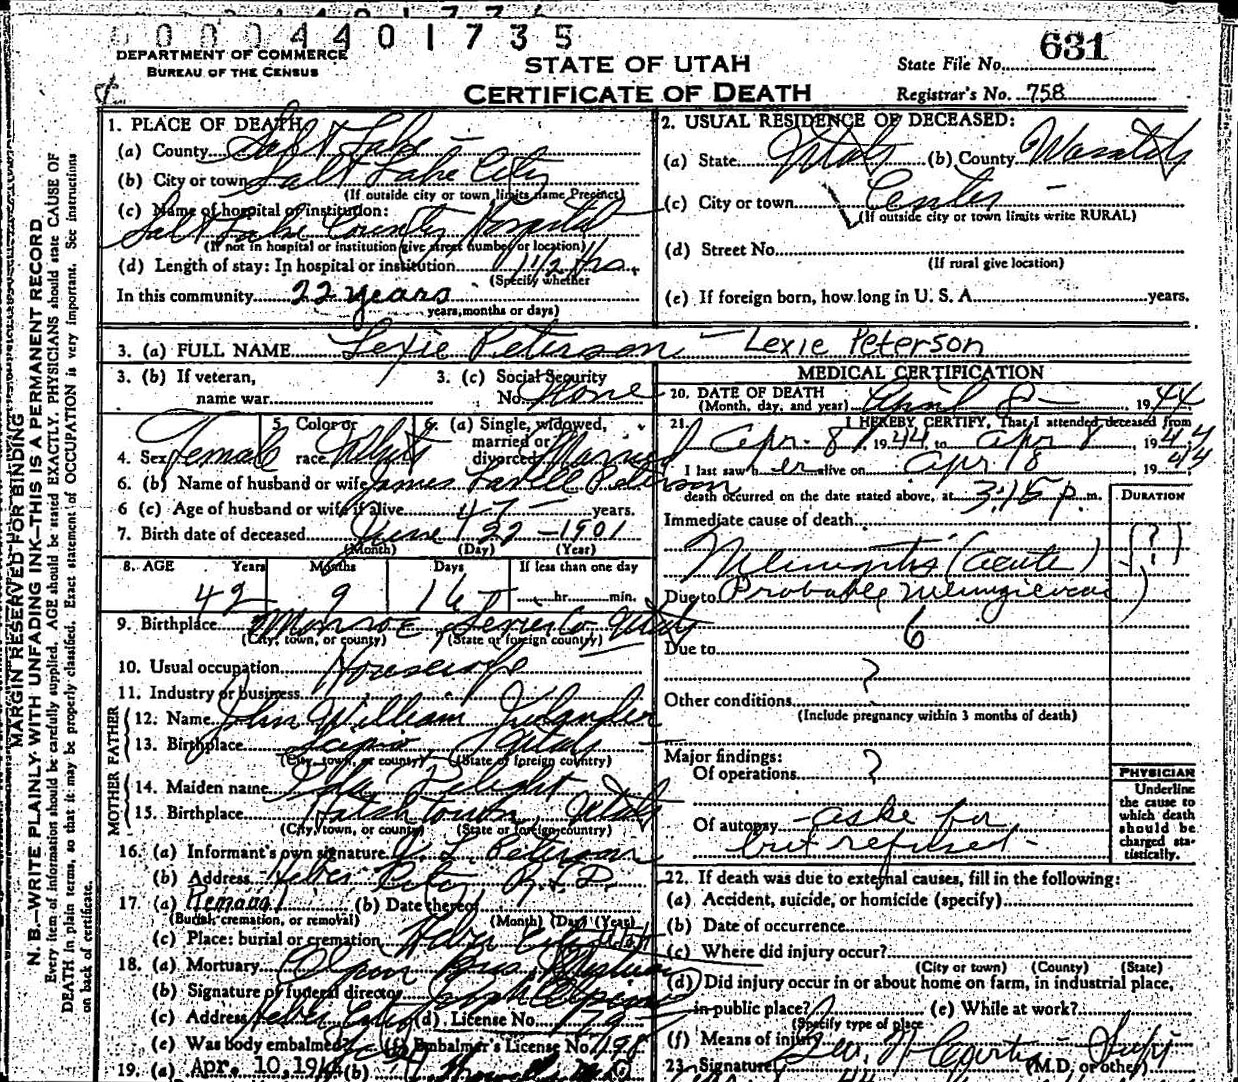 00004401735
DEPARTMENT OF COMMERCE
BUREAU OF THE CENSUS
STATE OF UTAH
CERTIFICATE OF DEATH
State File No. 631
Registrar's No. 758
MARGIN RESERVED FOR BINDING
N. B.—WRITE PLAINLY WITH UNFADING INK—THIS IS A PERMANENT RECORD
Every item of information should be carefully supplied. AGE should be stated EXACTLY. PHYSICIANS should state CAUSE OF
DEATH in plain terms, so that it may be properly classified. Exact statement of OCCUPATION is very important. See instructions
on back of certificate.
1. PLACE OF DEATH
(a) County Salt Lake
(b) City or town Salt Lake City
(If outside city or town limits name Precinct)
(c) Name of hospital or institution:
Salt Lake County Hospital
(If not in hospital or institution give street number or location)
(d) Length of stay: In hospital or institution 11 1/2 hrs.
(Specify whether
In this community 22 years
years, months or days)
2. USUAL RESIDENCE OF DECEASED:
(a) State Utah (b) County Wasatch
(c) City or town Center
(If outside city or town limits write RURAL)
(d) Street No.
(If rural give location)
(e) If foreign born, how long in U. S. A. years.
3. (a) FULL NAME Lexie Peterson - Lexie Peterson
3. (b) If veteran,
name war
3. (c) Social Security
No. None
4. Sex Female
5. Color or
race White
6. (a) Single, widowed,
married or
divorced Married
6. (b) Name of husband or wife James Lavell Peterson
6 (c) Age of husband or wife if alive 47 years.
7. Birth date of deceased June 22 - 1901
(Month) (Day) (Year)
8. AGE Years Months Days If less than one day
42 9 16 hr. min.
9. Birthplace Monroe, Sevier Co Utah
(City, town, or county) (State or foreign country)
10. Usual occupation Housewife
11. Industry or business
FATHER
12. Name John William
13. Birthplace Scipio, Utah
(City, town, or county) (State of foreign country)
MOTHER
14. Maiden name
15. Birthplace Utah
(City, town, or county) (State or foreign country)
16. (a) Informant's own signature J. L. Peterson
(b) Address Heber City R.F.D.
17. (a) Removal (b) Date thereof
(Burial, cremation, or removal) (Month) (Day) (Year)
(c) Place: burial or cremation Heber City Utah
18. (a) Mortuary Olpin Bros
(b) Signature of funeral director
(c) Address Heber City (d) License No. 179
(e) Was body embalmed? (f) Embalmer's License No. 198
19. (a) Apr. 10, 1944 (b)
MEDICAL CERTIFICATION
20. DATE OF DEATH
(Month, day, and year) April 8 - 1944
21. I HEREBY CERTIFY, That I attended deceased from
Apr. 8, 1944 to Apr 8, 1944
I last saw h er alive on Apr 8, 1944
death occurred on the date stated above, at 3:15 p. m.
DURATION
Immediate cause of death
Meningitis (acute) (?)
Due to Probable
6
Due to
?
Other conditions
(Include pregnancy within 3 months of death)
Major findings:
Of operations ?
Of autopsy - aske for
but refused -
PHYSICIAN
Underline
the cause to
which death
should be
charged sta-
tistically.
22. If death was due to external causes, fill in the following:
(a) Accident, suicide, or homicide (specify)
(b) Date of occurrence
(c) Where did injury occur?
(City or town) (County) (State)
(d) Did injury occur in or about home on farm, in industrial place,
in public place? (e) While at work?
(Specify type of place
(f) Means of injury
23. Signature Geo. N. Curtis (M.D. or other) Supt